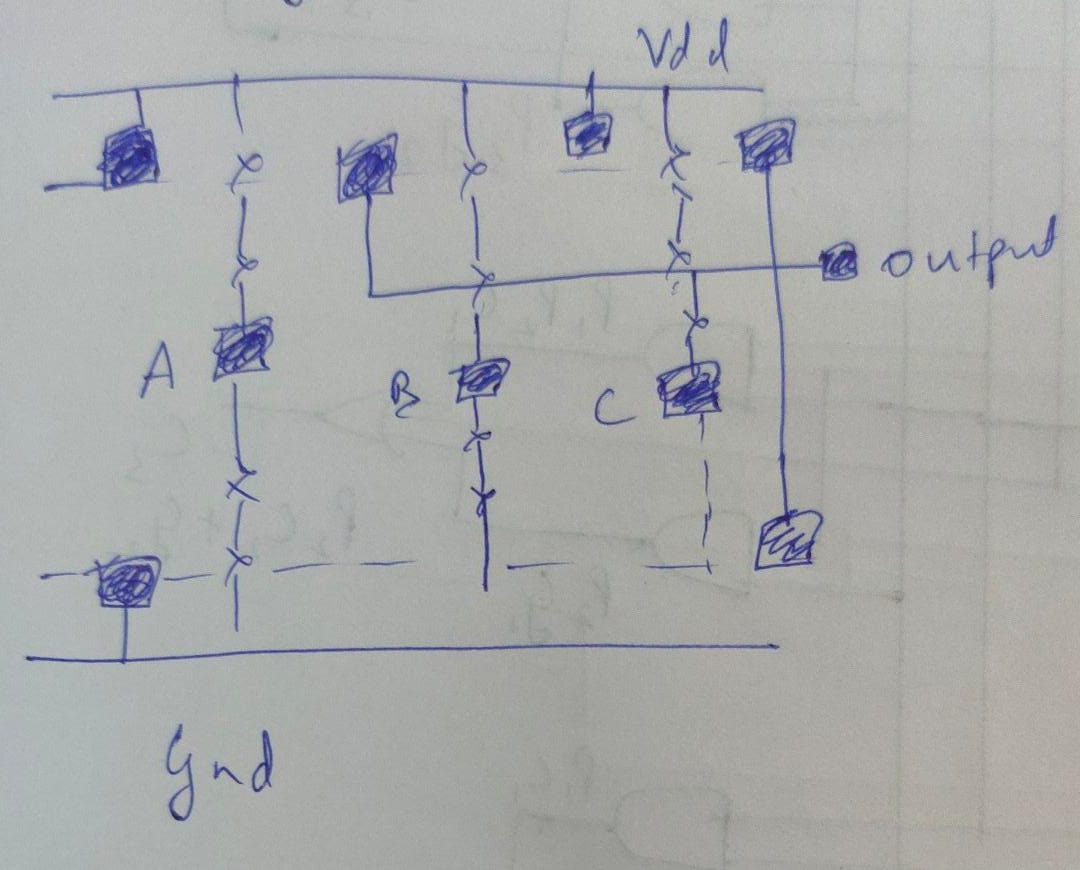 Vdd
output
A
B
C
Gnd